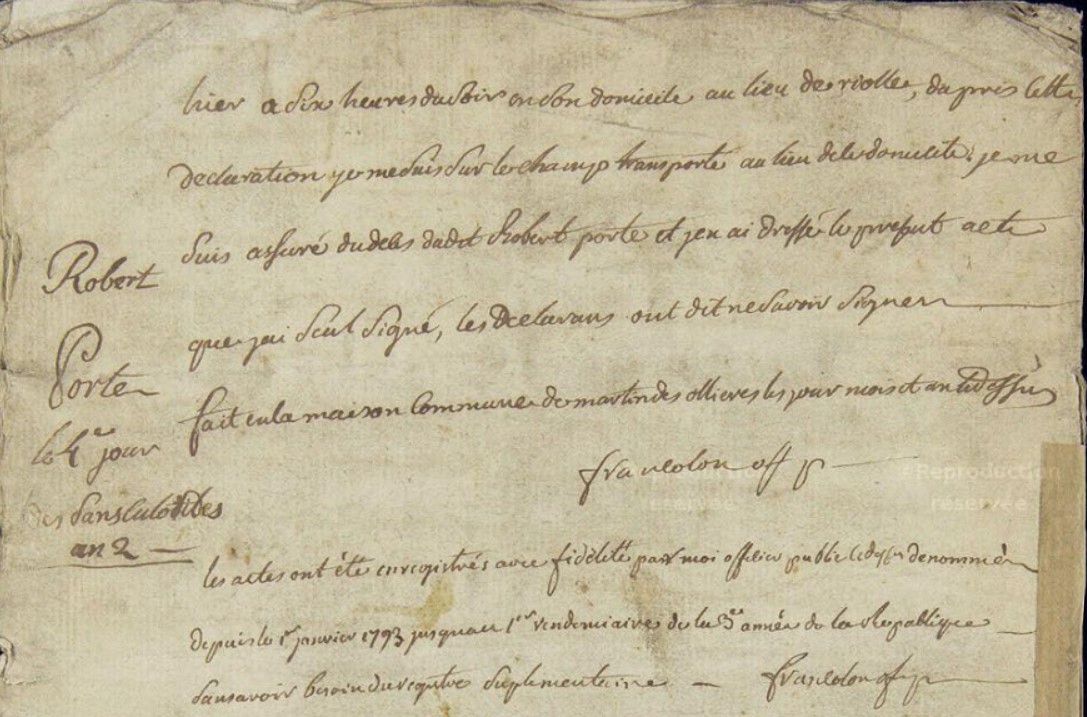 hier a six heures du soir en son domicile au lieu de riolle, dapris cette
declaration je me suis sur le champ transporté au lieu de le domicile, je me
suis assuré du deces dudit Robert porte et jen ai dressé le present acte
que jai seul signé, les Declarans ont dit ne savoir signer
fait en la maison Commune de martin des ollieres les jour mois et an
Robert
Porte
le 4e jour
des Sansculotides
an 2
francolon off p
les actes ont été enregistrés avec fidelité par moi officier public denommé
depuis le 1er janvier 1793 jusquau 1er vendemiaire de la 3e année de la Republique
sans avoir besoin du registre suplementaire
francolon off p
© Reproduction
réservée